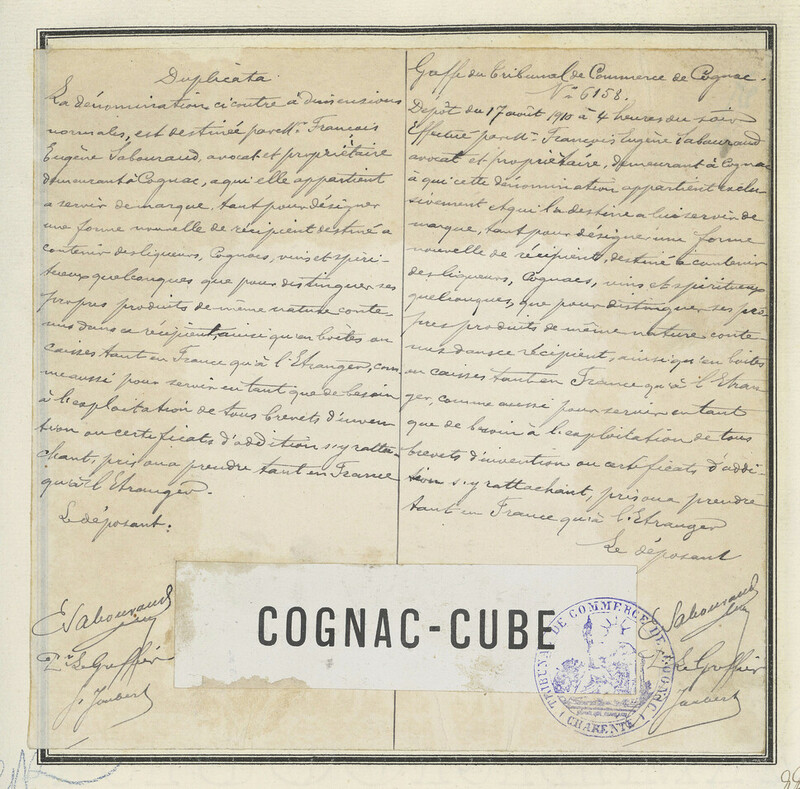 Duplicata
La dénomination ci contre à dimensions
normales, est destinée par Mr. François
Eugène Sabouraud, avocat et propriétaire
demeurant à Cognac, a qui elle appartient
a servir de marque, tant pour désigner
une forme nouvelle de récipient destiné a
contenir des liqueurs, Cognacs, vins et spiri-
tueux quelconques que pour distinguer ses
propres produits de même nature conte-
nus dans ce récipient, ainsi qu'en boîtes ou
caisses tant en France qu'à l'Etranger, com
me aussi pour servir en tant que de besoin
à l'exploitation de tous brevets d'inven
tion ou certificats d'addition s'y ratta-
chant, pris ou a prendre tant en France
qu'à l'Etranger.
Le déposant:
E Sabouraud
Le Greffier
J. Joubert
Greffe du Tribunal de Commerce de Cognac.
No 6158.
Dépôt du 17 août 1910 à 4 heures du soir
Effectué par Mr. François Eugène Sabouraud
avocat et propriétaire, demeurant à Cognac
à qui cette dénomination appartient exclu-
sivement et qui la destine a lui servir de
marque, tant pour désigner une forme
nouvelle de récipient, destiné à contenir
des liqueurs, Cognacs, vins et spiritueux
quelconques, que pour distinguer ses pro
pres produits de même nature, conte-
nus dans ce récipient, ainsi qu'en boîtes
ou caisses tant en France qu'à l'Etran-
ger, comme aussi pour servir en tant
que de besoin à l'exploitation de tous
brevets d'invention ou certificats d'addi-
tion s'y rattachant, pris ou a prendre
tant en France qu'à l'Etranger
Le déposant
Sabouraud
Le Greffier
Joubert
COGNAC-CUBE
TRIBUNAL DE COMMERCE DE COGNAC
(CHARENTE)